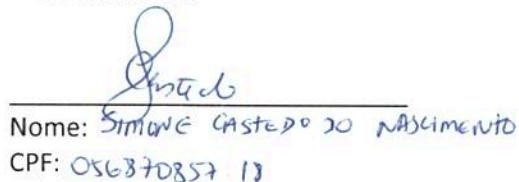 Castedo
Nome: SIMONE CASTEDO DO NASCIMENTO
CPF: 056870857 18